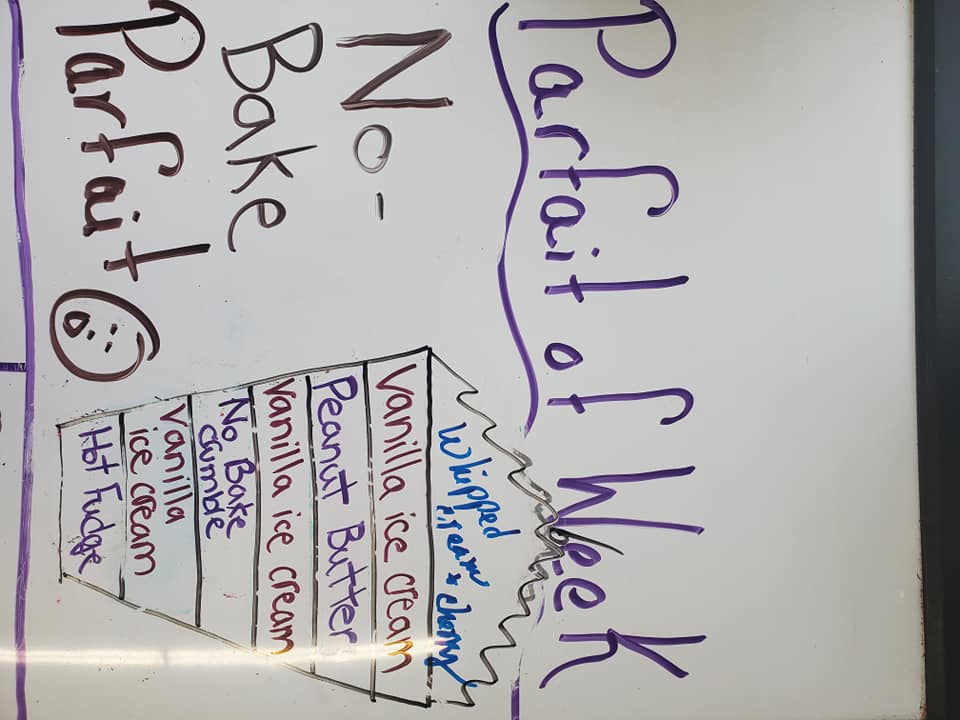 Parfait of Week
No-
Bake
Parfait
Whipped
cream & cherry
Vanilla ice cream
Peanut Butter
Vanilla ice cream
No Bake
Crumble
Vanilla
ice cream
Hot Fudge